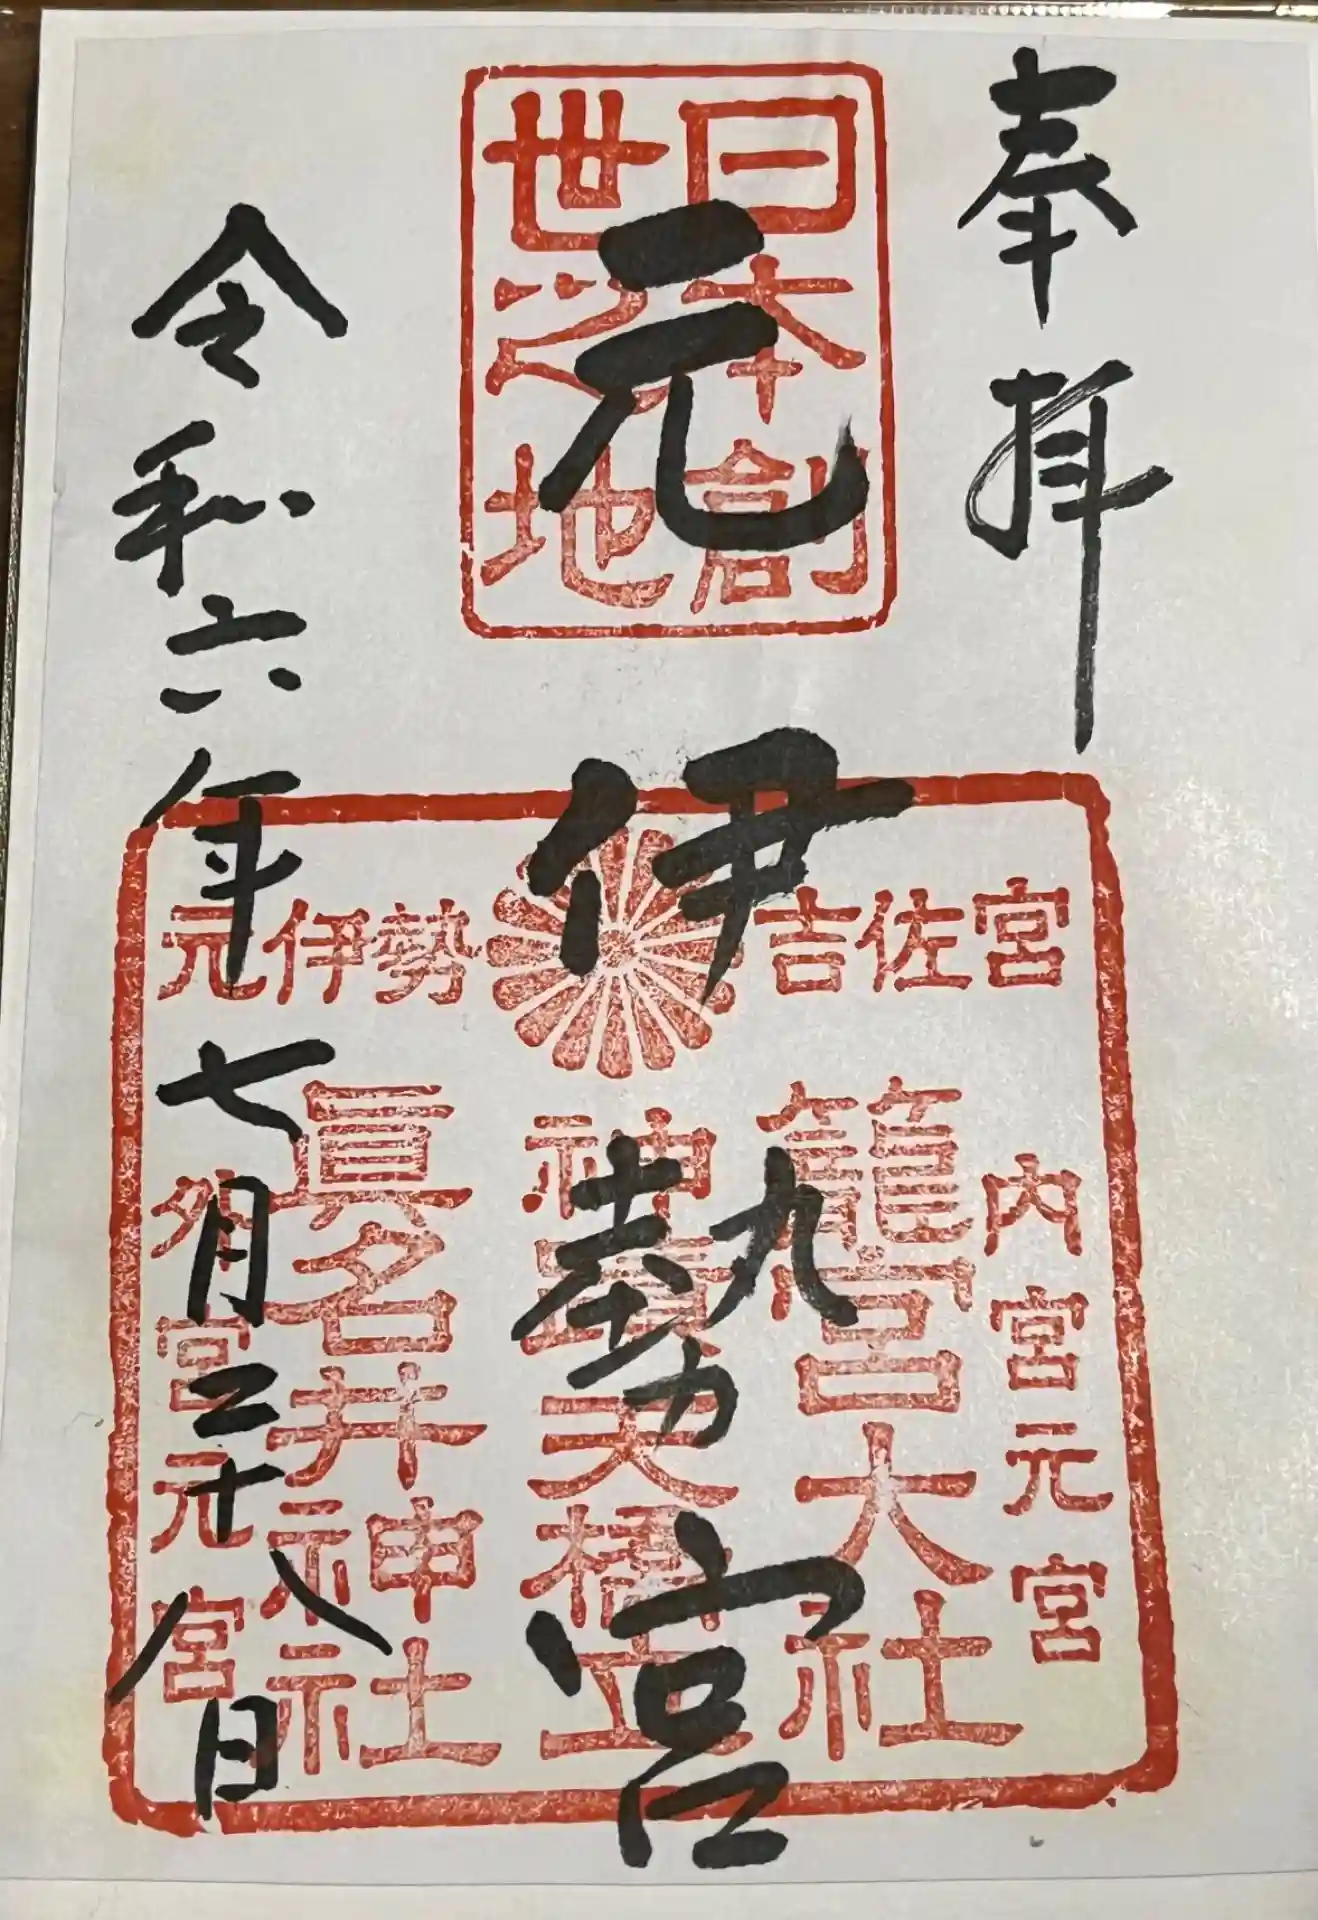 奉拝
日本創
世之地
元伊勢宮
吉佐宮
元伊勢
内宮元宮
籠宮大社
神寶天橋立
眞名井神社
外宮元宮
令和六年七月二十八日